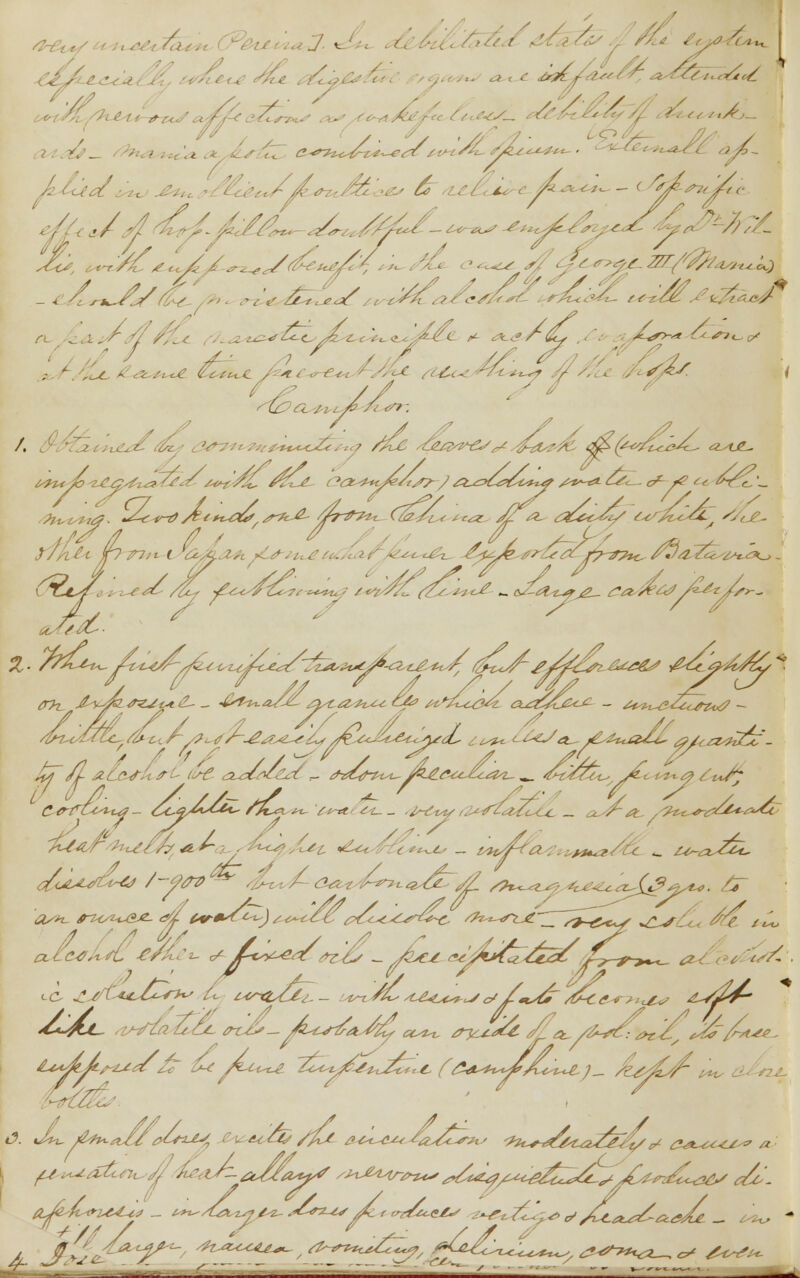 very uncertain Pereira]. In debilitated states of the system
especially where the digestive organs are in fault, attended
with nervous affections as wakefulness - debility of drunk-
ards - mania a potu combined with opium. Externall ap-
plied in emollient poultices to relieve pain - Soporific
effect of hop-pillow doubtful - was employed by Dr. Wil-
lis, with supposed benefit, in the case of George III (Mania)
- should be moistened with alcohol which will extract
a part of the narcotic principle & act by evaporation &
at the same time prevent the rustling of the hops.
Camphor.
1. Obtained by comminuting the leaves & bark of (which are
impregnated with the camphor) adding water & subli-
ming. Two kinds, one from China of a dirty white, the
other from Japan somewhat purer exported from Batavia.
Refined by subliming with lime - Large cakes perfor-
ated.
2. When first purified transparent, but effloresces slightly
on exposure - small granules which adhere - unctuous -
brittle, but not easily pulverized unless a small quanti-
ty of alcohol be added - odour peculiar - bitter, pungent,
cooling - lighter than water - very volatile - at a moderate
heat melts, at a higher sublime - inflammable - water
dissolves 1-900th but carbonate of magnesia (3 grs. to
an ounce of water) will dissolve more - very soluble in
alcohol ether & fixed oils - precipitated from alcohol-
ic solution by water - with resins & fats becomes soft
like volatile oils - probably an oxide of a vol: oil, its base
supposed to be pure turpentine (camphine) - kept in close
bottles.
3. In small doses, excites the circulation moderately & causes a
sensation of heat - allays nervous disquietude & produces di-
aphoresis - in larger doses produces vertigo & head-ache - in
still larger, nausea, vomiting, delirium, coma & even
4. Dose